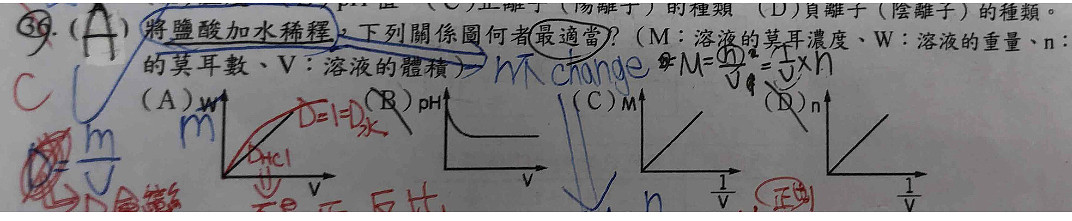 (C)正離子(陽離子)的種類 (D)負離子(陰離子)的種類。
36. (A) 將鹽酸加水稀釋,下列關係圖何者最適當?(M:溶液的莫耳濃度、W:溶液的重量、n:
的莫耳數、V:溶液的體積) n不change M=n/V=1/V×n
C
(A) W (B) pH (C) M (D) n
m D=1=D水
m/V
DHCl
V V 1/V 1/V
反比 n 正比